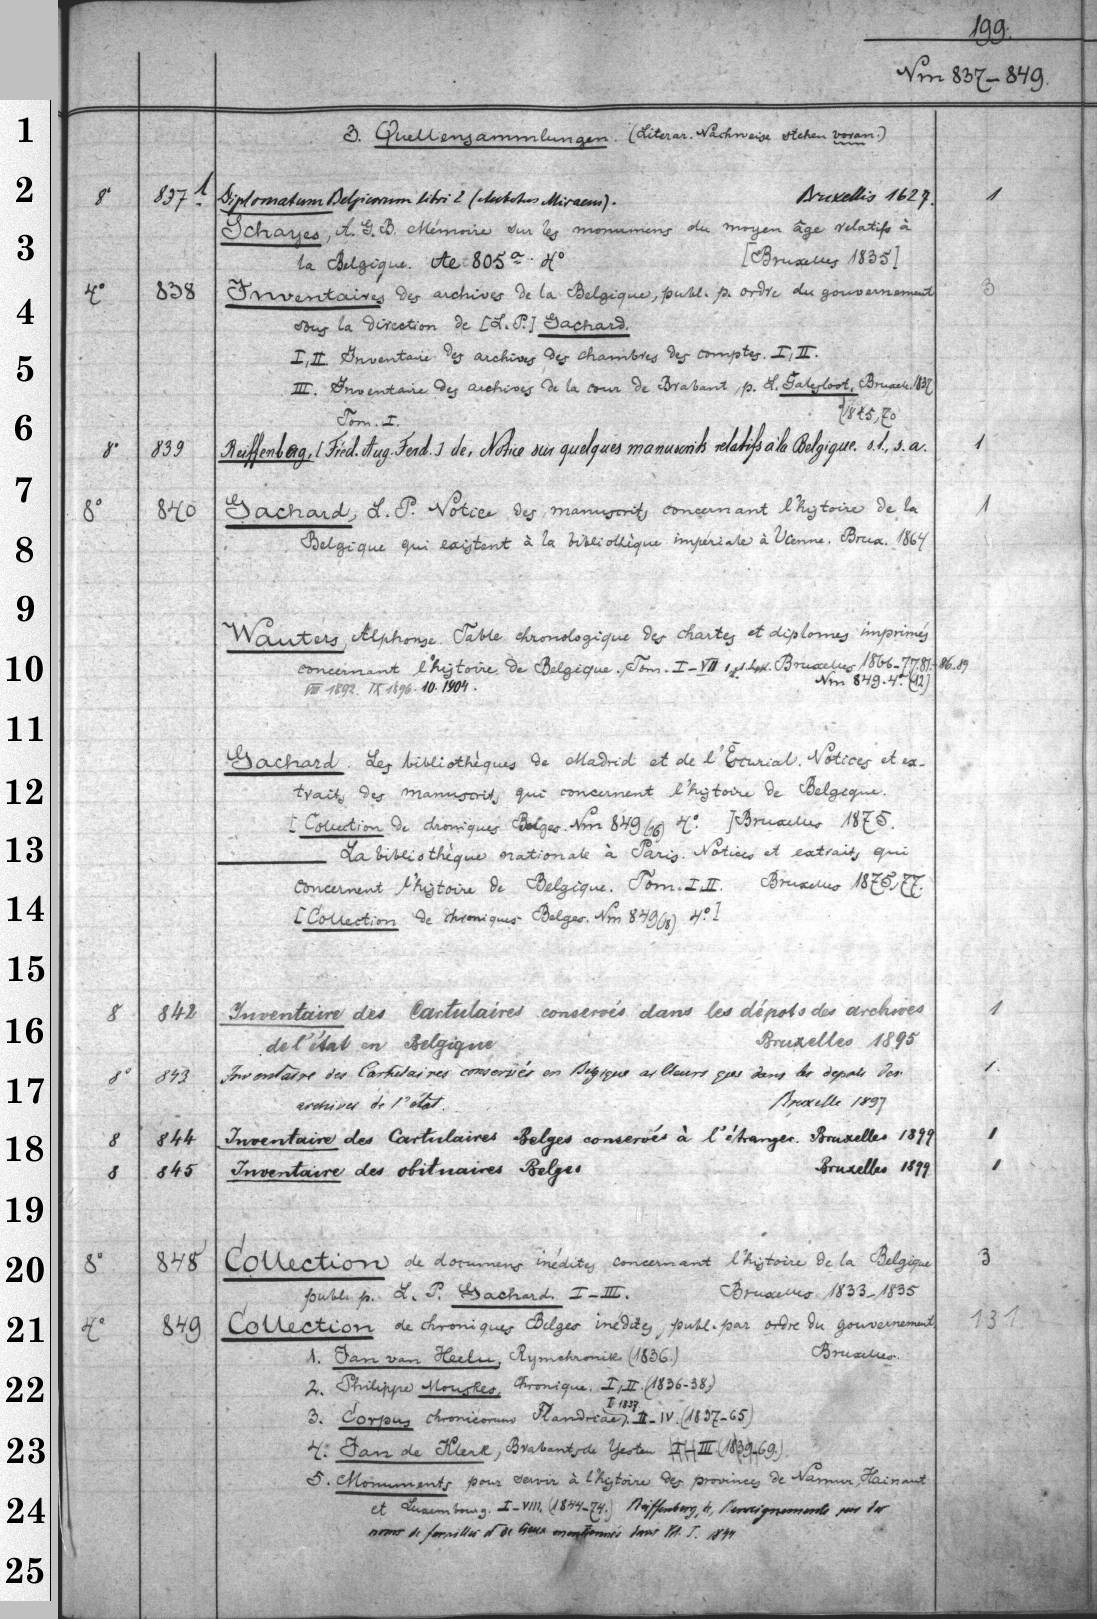 199.
Nm 837-849.
3. Quellensammlungen. (Literar. Nachweise stehen voran.)
8° 837 1 Diplomatum Belgicorum libri 2 (Aubertus Miraeus). Bruxellis 1627. 1
Schayes, A. G. B. Mémoire sur les monumens du moyen âge relatifs à
la Belgique. Ae 805a 4° [Bruxelles 1835]
4° 838 Inventaires des archives de la Belgique, publ. p. ordre du gouvernement 3
sous la direction de [L. P.] Gachard.
I, II. Inventaire des archives des chambres des comptes. I, II.
III. Inventaire des archives de la cour de Brabant, p. L. Galesloot. Bruxel. 1837
Tom. I. 1845, 70
8° 839 Reiffenberg, [Fréd. Aug. Ferd.] de, Notice sur quelques manuscrits relatifs à la Belgique. s. l., s. a. 1
8° 840 Gachard, L. P. Notice des manuscrits concernant l'histoire de la 1
Belgique qui existent à la bibliothèque impériale à Vienne. Brux. 1864
Wauters, Alphonse. Table chronologique des chartes et diplomes imprimés
concernant l'histoire de Belgique. Tom. I-VII Bruxelles 1866-77.81.-86.89
VIII 1892. IX 1896. 10. 1904. Nm 849. 4° (12)
Gachard. Les bibliothèques de Madrid et de l'Escurial. Notices et ex-
traits des manuscrits qui concernent l'histoire de Belgique.
[Collection de chroniques Belges. Nm 849 (16) 4°.] Bruxelles 1875.
La bibliothèque nationale à Paris. Notices et extraits qui
concernent l'histoire de Belgique. Tom. I, II. Bruxelles 1875, 77.
[Collection de chroniques Belges. Nm 849 (18) 4°.]
8 842 Inventaire des Cartulaires conservés dans les dépots des archives 1
de l'état en Belgique Bruxelles 1895
8° 843 Inventaire des Cartulaires conservés en Belgique ailleurs que dans les depots des 1.
archives de l'état. Bruxelle 1897
8 844 Inventaire des Cartulaires Belges conservés à l'étranger. Bruxelles 1899 1
8 845 Inventaire des obituaires Belges Bruxelles 1899 1
8° 848 Collection de documens inédits concernant l'histoire de la Belgique 3
publ. p. L. P. Gachard. I-III. Bruxelles 1833-1835
4° 849 Collection de chroniques Belges inédites, publ. par ordre du gouvernement 131.
1. Jan van Heelu, Rymchronik (1836.) Bruxelles.
2. Philippe Mouskes, Chronique. I, II. (1836-38.)
I 1837.
3. Corpus chronicorum Flandriae. II-IV. (1837-65)
4. Jan de Klerk, Brabantsche Yesten I-III (1839-69.)
5. Monuments pour servir à l'histoire des provinces de Namur, Hainaut
et Luxembourg. I-VIII. (1844-74.) Reiffenberg, de, Renseignements sur les
noms de familles et de lieux mentionnés dans T. I. 1844